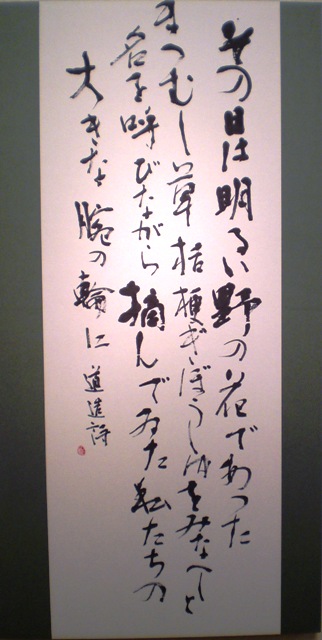 その日は明るい野の花であつた
まつむし草桔梗ぎぼうしゆをみなへしと
名を呼びながら摘んでゐた私たちの
大きな腕の輪に 道造詩